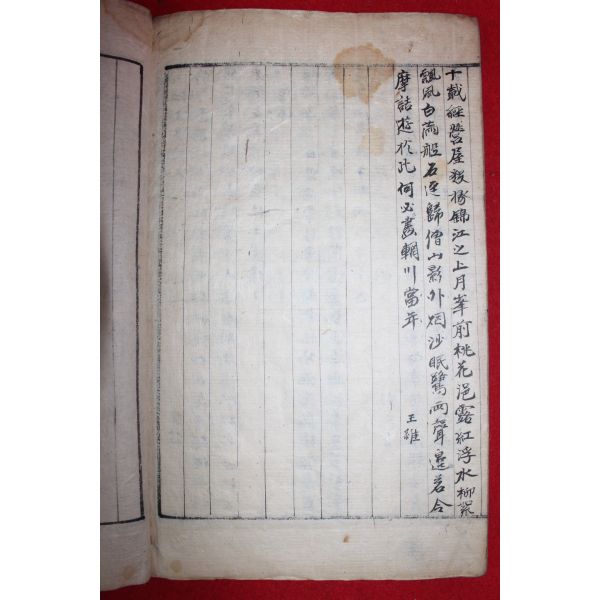 十載經營屋數椽錦江之上月峯前桃花浥露紅浮水柳絮
飄風白滿船石逕歸僧山影外烟沙眠鷺雨聲邊若令
摩詰遊於此何必畫輞川當年
王維